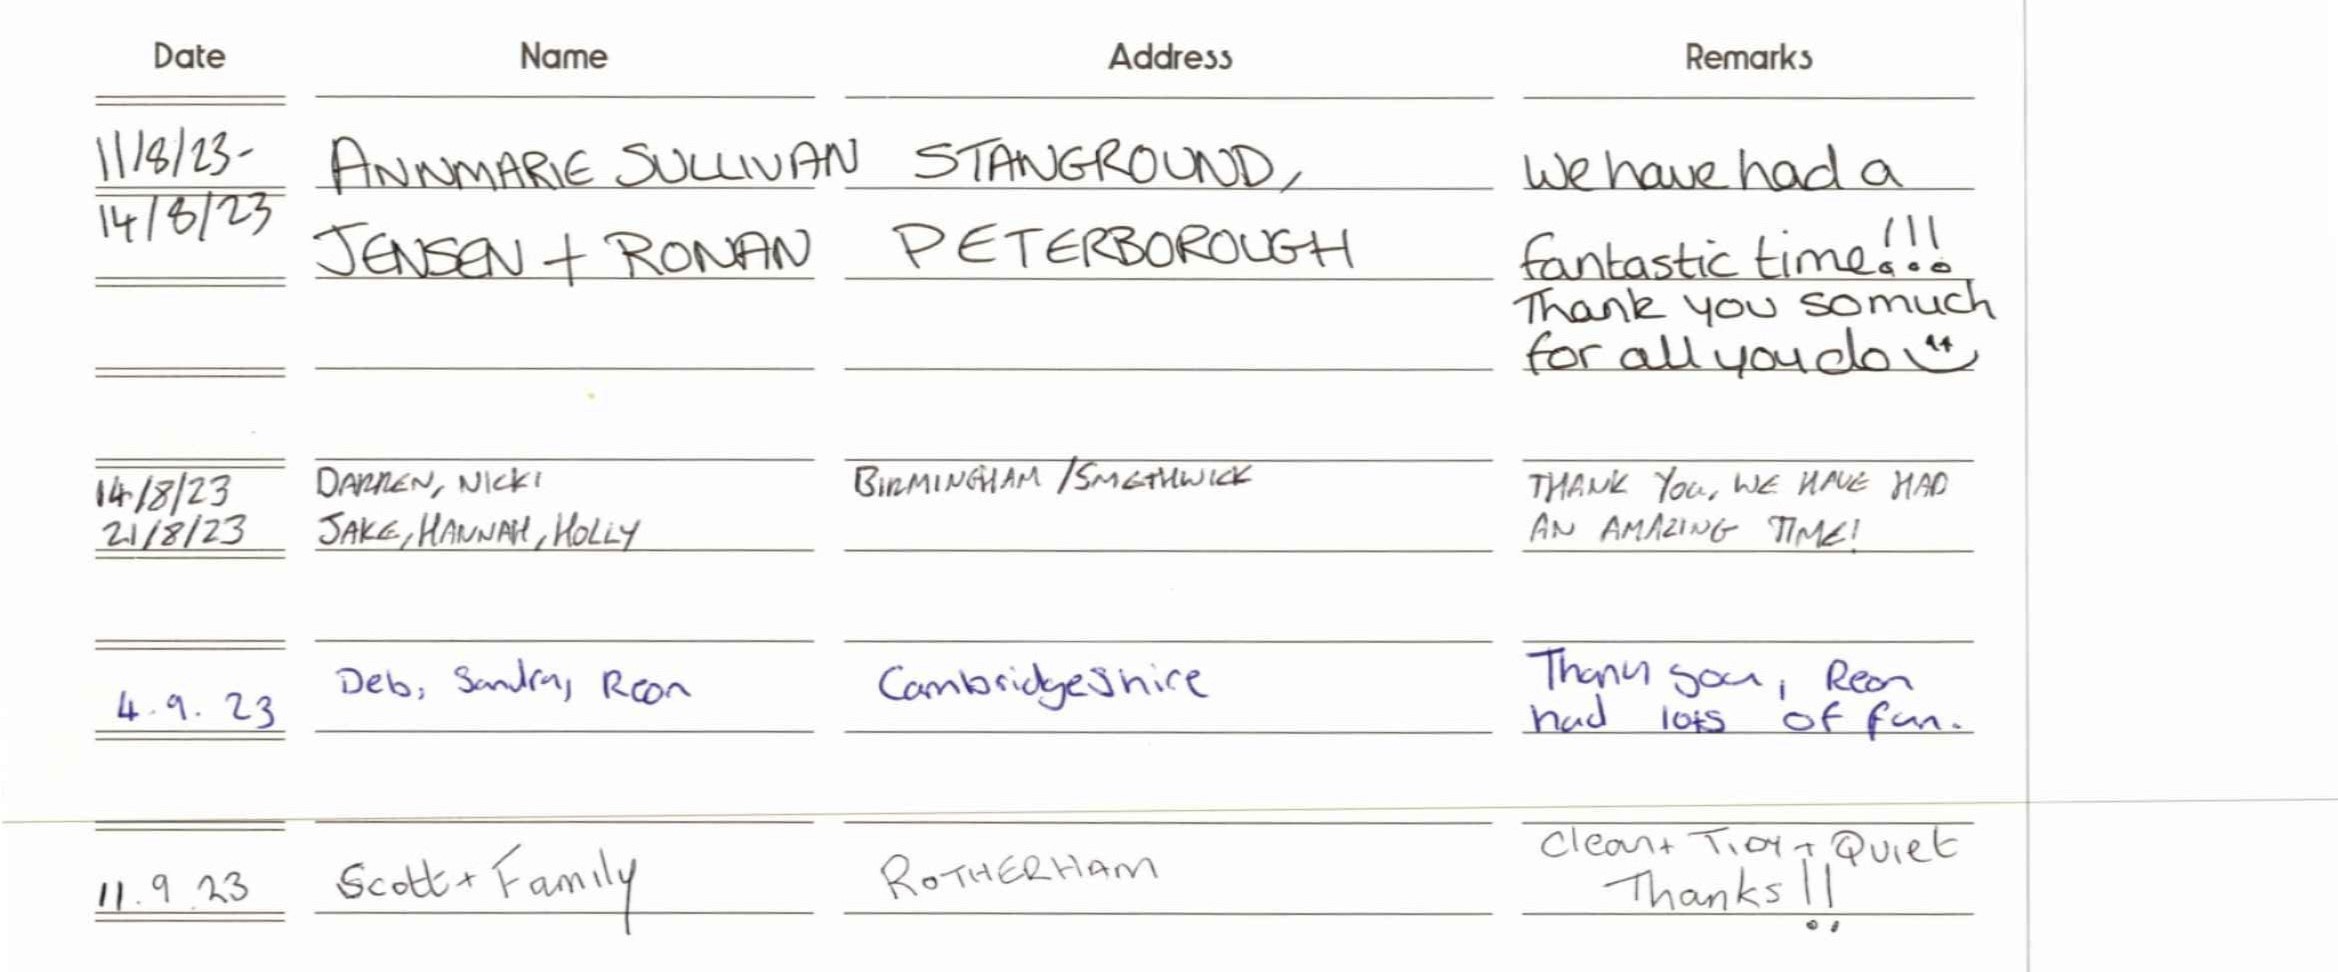 Date Name Address Remarks
11/8/23- ANNMARIE SULLIVAN STANGROUND, We have had a
14/8/23 JENSEN + RONAN PETERBOROUGH fantastic time!!!
Thank you so much
for all you do
14/8/23 DARREN, NICKI BIRMINGHAM /SMETHWICK THANK YOU, WE HAVE HAD
21/8/23 JAKE, HANNAH, HOLLY AN AMAZING TIME!
4.9.23 Deb, Sandra, Reon Cambridgeshire Thank you, Reon
had lots of fun.
11.9.23 Scott + Family ROTHERHAM Clean + TIDY + Quiet
Thanks!!